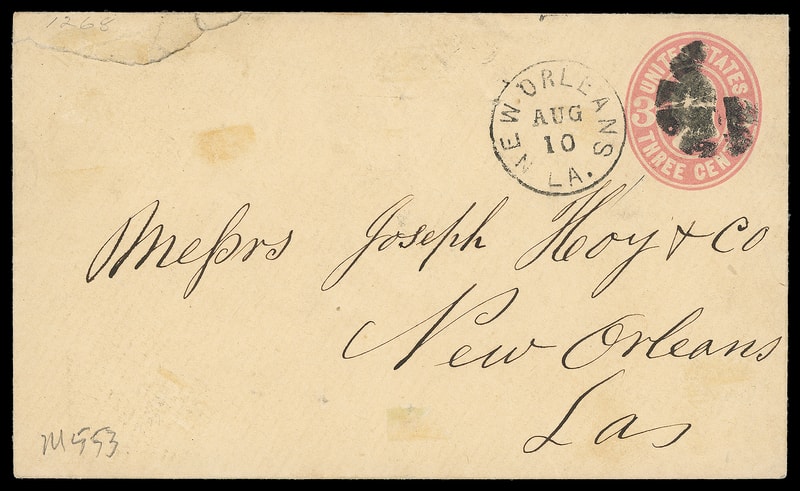 1268
UNITED STATES
3
THREE CENTS
NEW ORLEANS
AUG
10
LA.
Meſsrs Joseph Hoy & Co
New Orleans
Las
M553